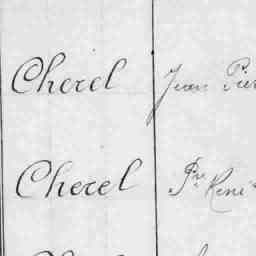 Cherel Jean Pier
Cherel Pre René